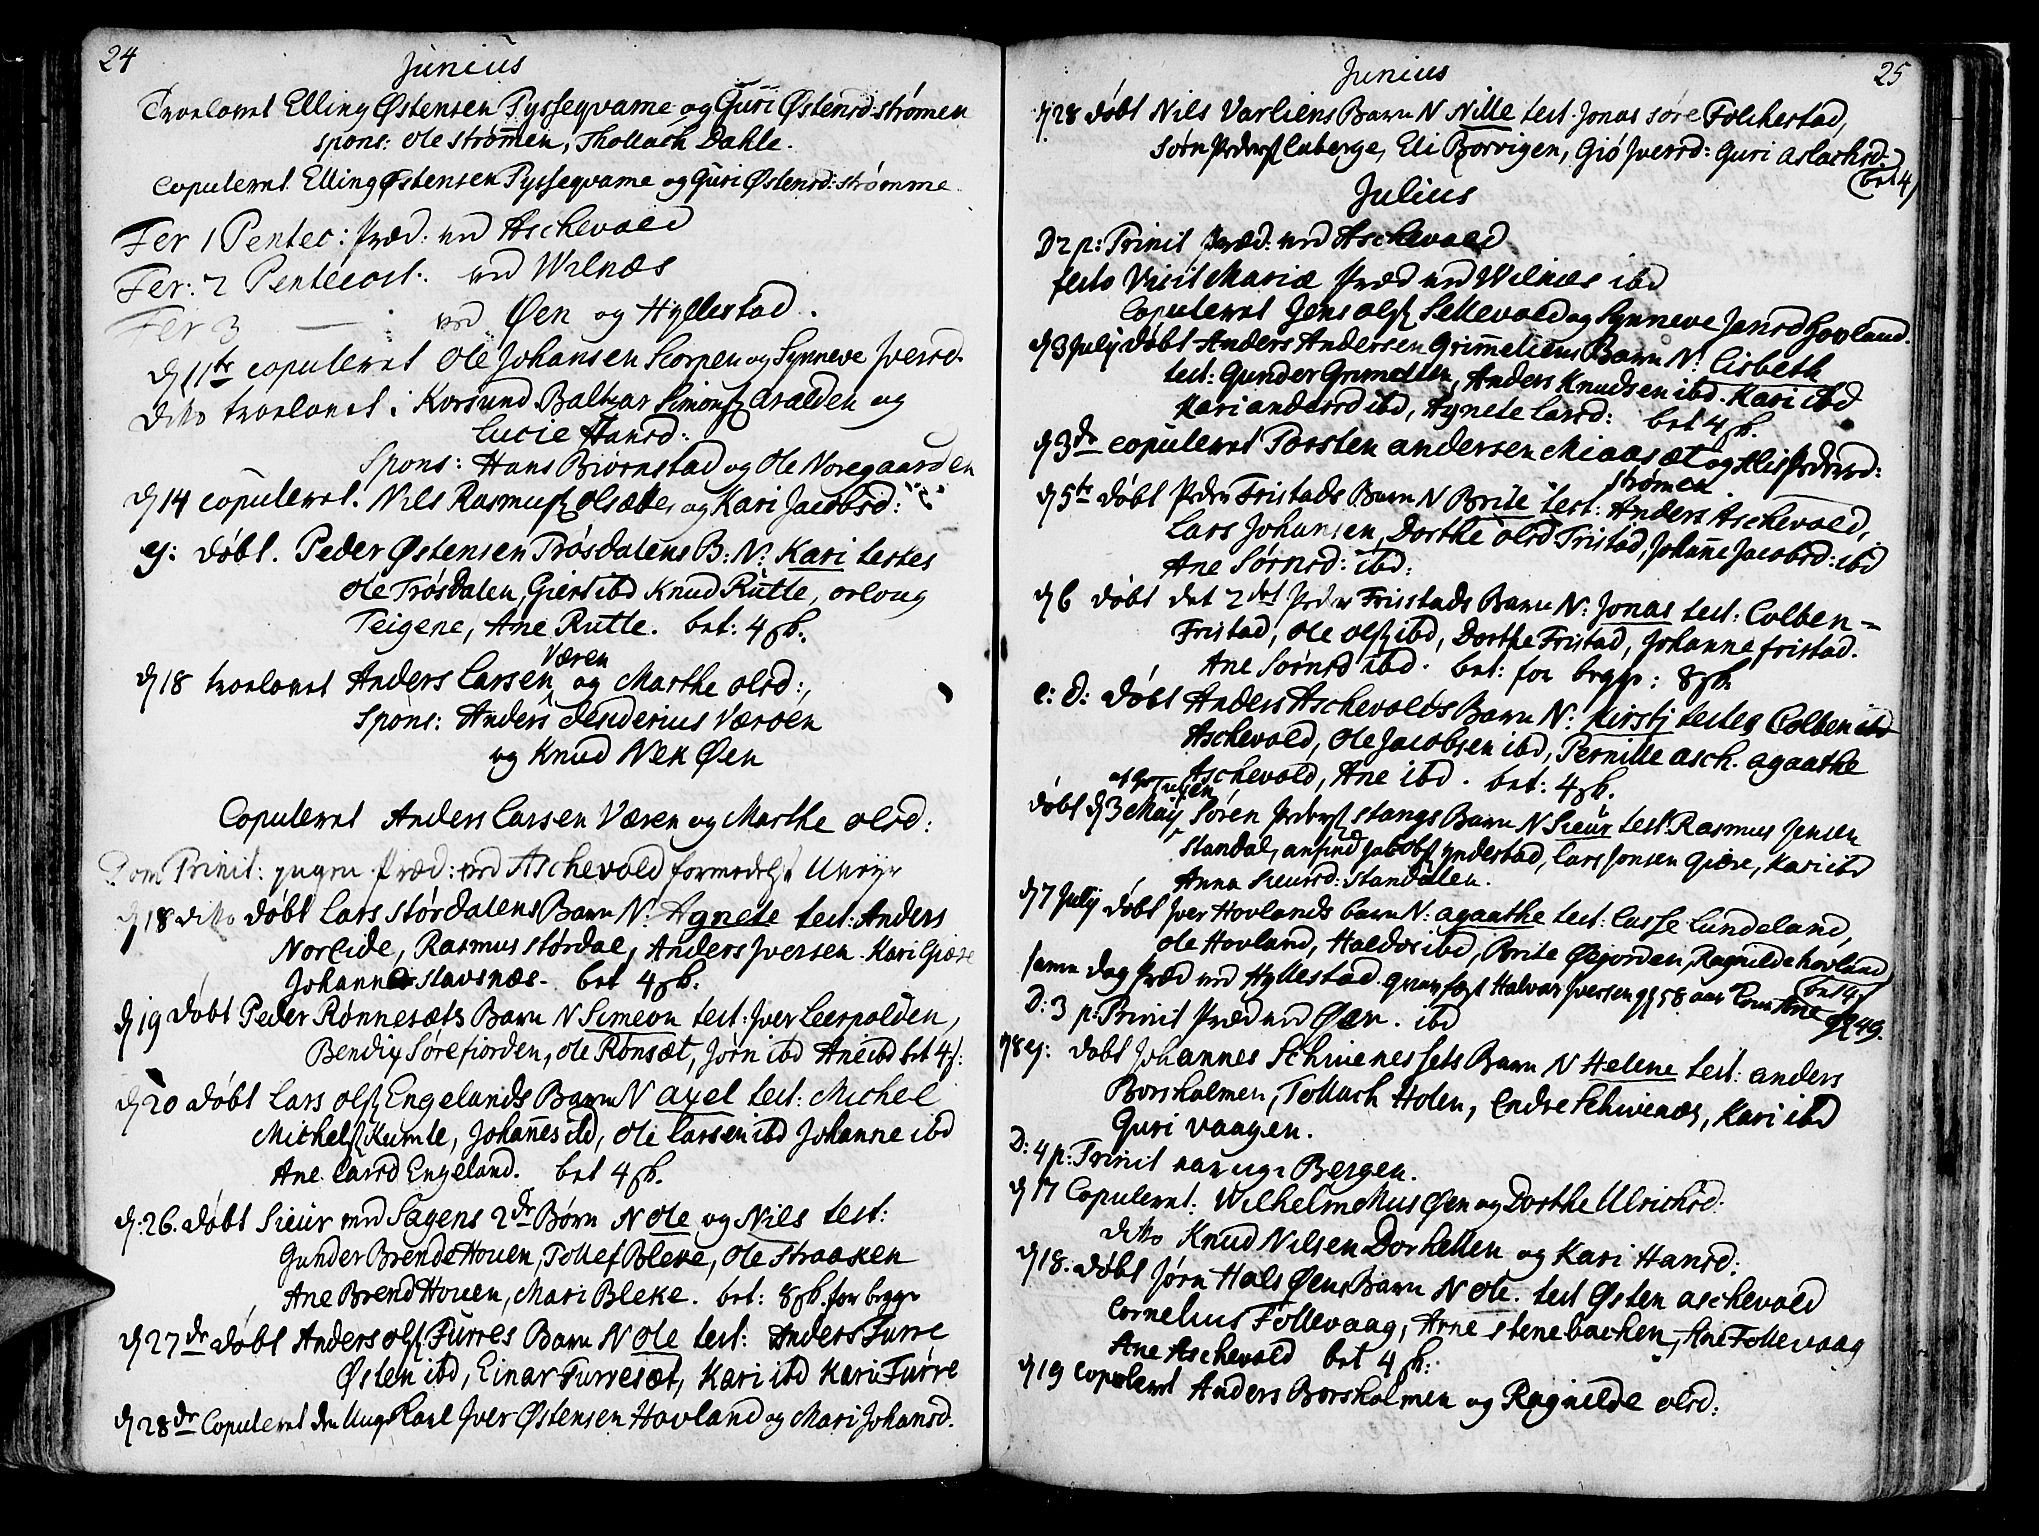 24
Junius
Troelovet Elling Østensen Tysseqvame og Guri Østensd. strømen
spons: ole strømen, Thollach Dahle.
Copuleret Elling Østensen Tysseqvame og Guri Østensd: strømme
Fer 1 Pentec: Præd. ved Aschevold
Fer: 2 Pentecost. ved Wilnæs
Fer 3 ved Øen og Hyllestad.
d 11te copuleret Ole Johansen Scorpen og Synneve Jversd.
ditto troelovet i Korsund Baltzar Simons Aralden og
Lucie Hansd:
Spons: Hans Biørnstad og Ole Noregaarden
d 14 copuleret. Nils Rasmus olsætter og Kari Jacobsd:
ej: døbt. Peder Østensen Trosdalens B: N: Kari testes
Ole Trosdalen, Giert ibd Knud Rutle, orloug
Teigene, Ane Rutle. bet: 4 sk.
Væren
d 18 troelovet Anders Larsen og Marthe olsd:,
Spons: Anders desiderius Værøen
og Knud Nek Øen
Copuleret Anders Larsen Væren og Marthe olsd:
Dom Trinit: ingen Præd: ved Aschevold formedelst Uveyr
d 18 ditto døbt Lars Størdalens Barn N: Agnete test: Anders
Norlide, Rasmus størdal, Anders Jversen. Kari Giære
Johanne Stavsnæs. bet 4 sk.
d 19 døbt Peder Rønnesæts Barn N Simeon test: Jver Leerpolden,
Bendix Sørefiorden, ole Rønsæt, Jørn ibd Ane ibd bet 4 s:
d 20 døbt Lars ols Engelands Barn N axel test: Michel
Michels Kumle, Johannes ibd, Ole Larsen ibd Johanne ibd
Ane Larsd Engeland. bet 4 sk.
d: 26. døbt Siur med Sagens 2de Børn N Ole og Nils test:
Gunder Brendehouen, Tollef Bleke, Ole straaken
Ane BrendHouen, Mari Bleke. bet: 8 sk. for begge
d 27de døbt Anders ols Furres Barn N Ole test: Anders Furre
Østen ibd, Einar Furresæt, Kari ibd Kari Furre
d 28de Copuleret den Unge Karl Jver Østensen Hovland og Mari Johansd.
25
Junius
d 28 døbt Nils Varliens Barn N Nille test. Jonas søre Folchestad,
Sørn Peders Enberge, Eli Borvigen, Giø Jversd: Guri aslachsd.
bet 4
Julius
D 2 p: Trinit Præd: ved Aschevold
festo Visit Mariæ Præd ved Wilnæs ibd
Copuleret Jens ols Sellevold og Synneve Jensd Hovland.
d 3 July døbt Anders Andersen Grimeliens Barn N: Lisbeth
test: Gunder Grimelien, Anders Knudsen ibd. Kari ibd
Kari andersd ibd, Agnete Larsd: bet 4 sk.
d 3de copuleret Torsten andersen Miaasæt og Alis Pedersd:
strømen
d 5te døbt Peder Fristads Barn N Brite test: Anders Aschevold,
Lars Johansen, Dorthe olsd Fristad, Johanne Jacobsd: ibd
Ane Sørnsd: ibd:
d 6 døbt det 2det Peder Fristads Barn N: Jonas test: Colben
Fristad, Ole ols ibd, Dorthe Fristad, Johanne fristad.
Ane Sørnsd ibd. bet: for begge: 8 sk
e: d: døbt Anders Aschevolds Barn N: Kirsti testes Colben ibd
Aschevold, Ole Jacobsen ibd, Pernille asch. agaathe
Aschevold, Ane ibd. bet: 4 sk.
døbt d 3 May Søren Peders stangs Barn N Siur test: Rasmus Jensen
Standal, anfind Jacobs Yndestad, Lars Jonsen Giære, Kari ibd
Anna Siursd: Standalen.
d 7 July døbt Jver Hovlands barn N: agaathe test: Lasse Lundeland,
Ole Hovland, Haldos ibd, Brite Øejorden, Ragnilde hovland
bet 4
samme dag Præd ved Hyllestad. Halvor Jversen 58 aar
D: 3 p: Trinit Præd ved Øen. ibd
49.
d 8 ej: døbt Johannes Schivenessets Barn N Helene test: anders
Borsholmen, Tollach Holen, Endre Schivenæs, Kari ibd
Guri vaagen.
D: 4 p: Trinit var jeg i Bergen.
d 17 Copuleret: Wilhelm Mus Øen og Dorthe Ulrichsd:
ditto Knud Nilsen Dorhellen og Kari Hansd:
d 18. døbt Jørn Hals Øens Barn N Ole. test Østen aschevold
Cornelius Follevaag, Arne stenebachen, Ane Follevaag
Ane Aschevold bet 4 sk:
d 19 copuleret Anders Borsholmen og Ragnilde olsd: